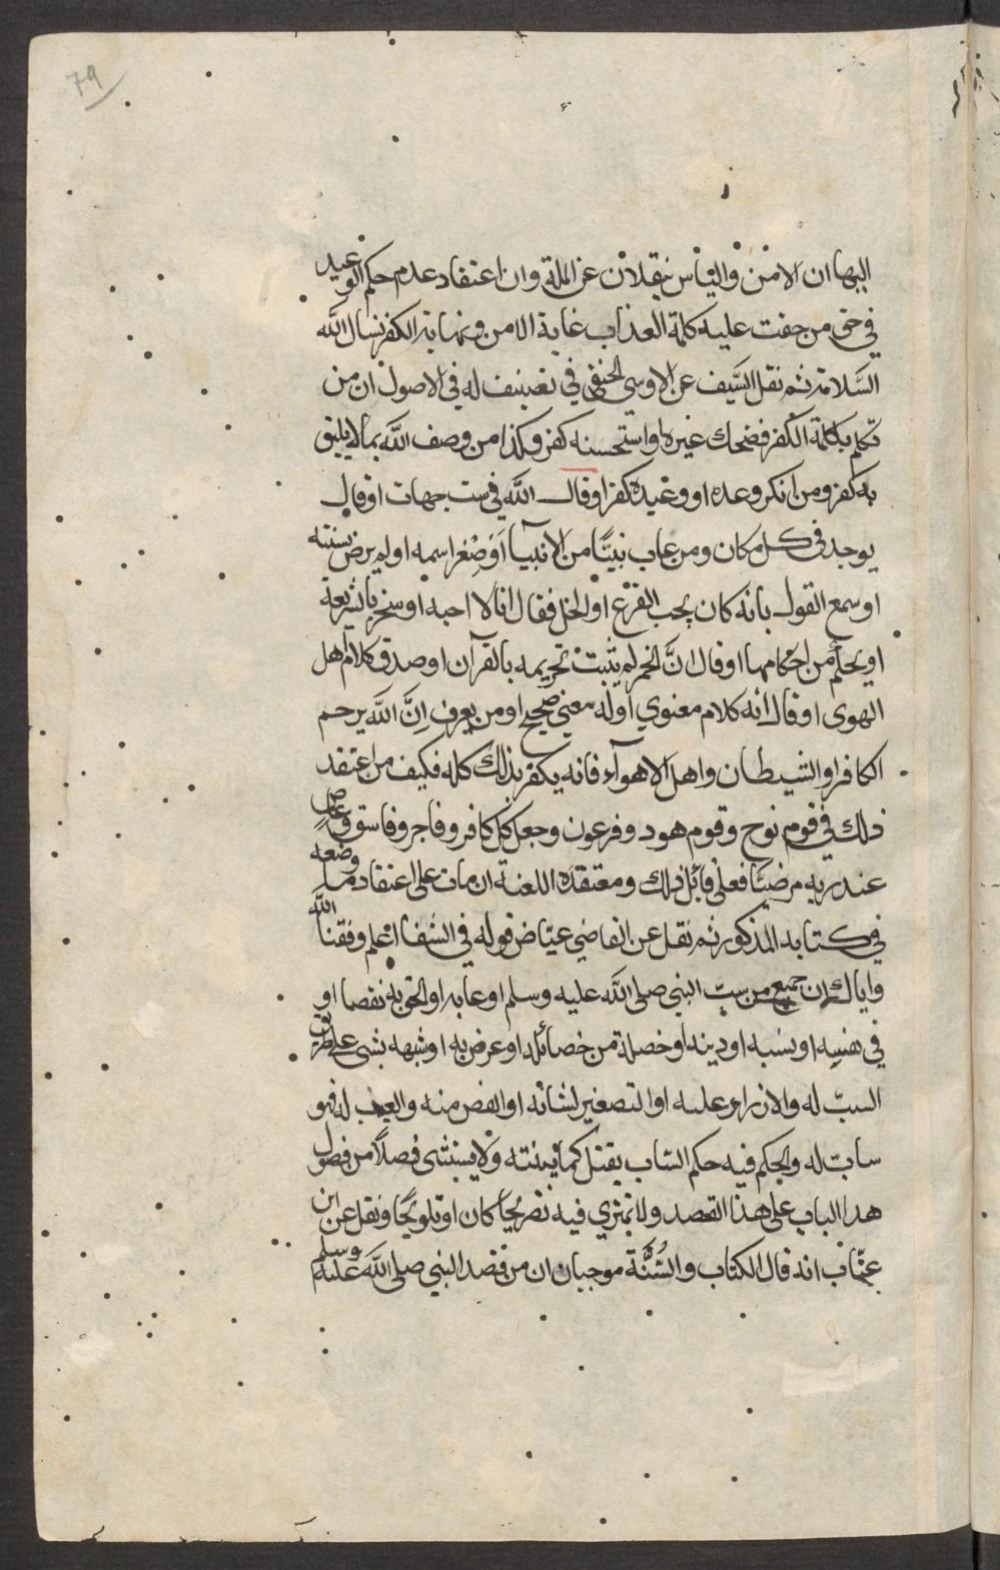 79
اليها ان الامن والياس ينقلان عن الملة وان اعتقاد عدم حكم الوعيد
في حق من حقت عليه كلمة العذاب غاية الامن ونهاية الكفر نسال الله
السلامة ثم نقل السيف عن الاوسي الحنفي في تصنيف له في الاصول ان من
تكلم بكلمة الكفر فضحك غيره او استحسنه كفر وكذا من وصف الله بمالا يليق
به كفر ومن انكر وعده او وعيده كفر او قال الله في ست جهات او قال
يوجد في كل مكان ومن عاب نبيًا من الانبيآ اَوْ صْغر اسمه او لم يرض بسنته
او سمع القول بانه كان يحب القرع او الخل فقال انا لا احبه او سخر بالشريعة
او بحكم من احكامها او قال انَّ الخمر لم يثبت تحريمه بالقرآن او صدق كلام اهل
الهوى او قال انه كلام معنوي او له معنى صحيح او من يعرف اِنَّ الله يرحم
الكافر او الشيطان واهل الاهوآء فانه يكفر بذلك كله فكيف من اعتقد
ذلك في قوم نوح وقوم هود وفرعون وجعل كل كافر وفاجر وفاسق وعاصٍ
عند ربه مرضيًا فعلى قائل ذلك ومعتقده اللعنة ان مات على اعتقاد ما وضعه
في كتابه المذكور ثم نقل عن القاضي عياض قوله في الشفا اعلم وفقنا الله
واياك ان جميع من سبّ النبي صلى الله عليه وسلم او عابه او الحق به نقصا او
في نفسه او نسبه او دينه او خصلة من خصائله او عرض به او شبهه بشى على طريق
السبّ له والازراء عليه او التصغير لشانه او الغض منه والعيب له فهو
سابّ له والحكم فيه حكم الساب يقتل كما نبينته ولا يستثنى فصلاً من فصول
هدا الباب على هذا القصد ولا نمتري فيه تصريحًا كان او تلويحًا ونقل عن ابن
عتّاب انه قال الكتاب والسُّنَّة موجبان ان من قصد النبي صلى الله عليه وسلم